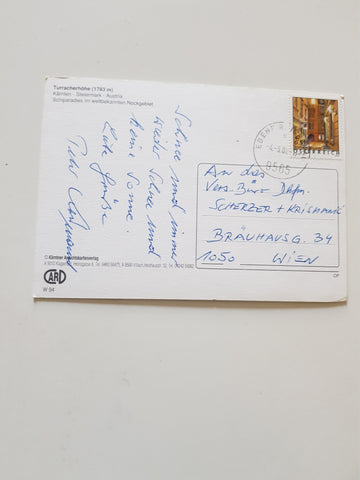 Turracherhöhe (1783 m)
Kärnten - Steiermark - Austria
Schiparadies im weltbekannten Nockgebiet
Schnee und immer
wieder Schnee und
keine Sonne.
Liebe Grüße
ÖSTERREICH
9565
An das
Vers. Büro Dkfm.
SCHERZER + KRISMANIC
BRÄUHAUSG. 34
1050 WIEN
© Kärntner Ansichtskartenverlag
W 94